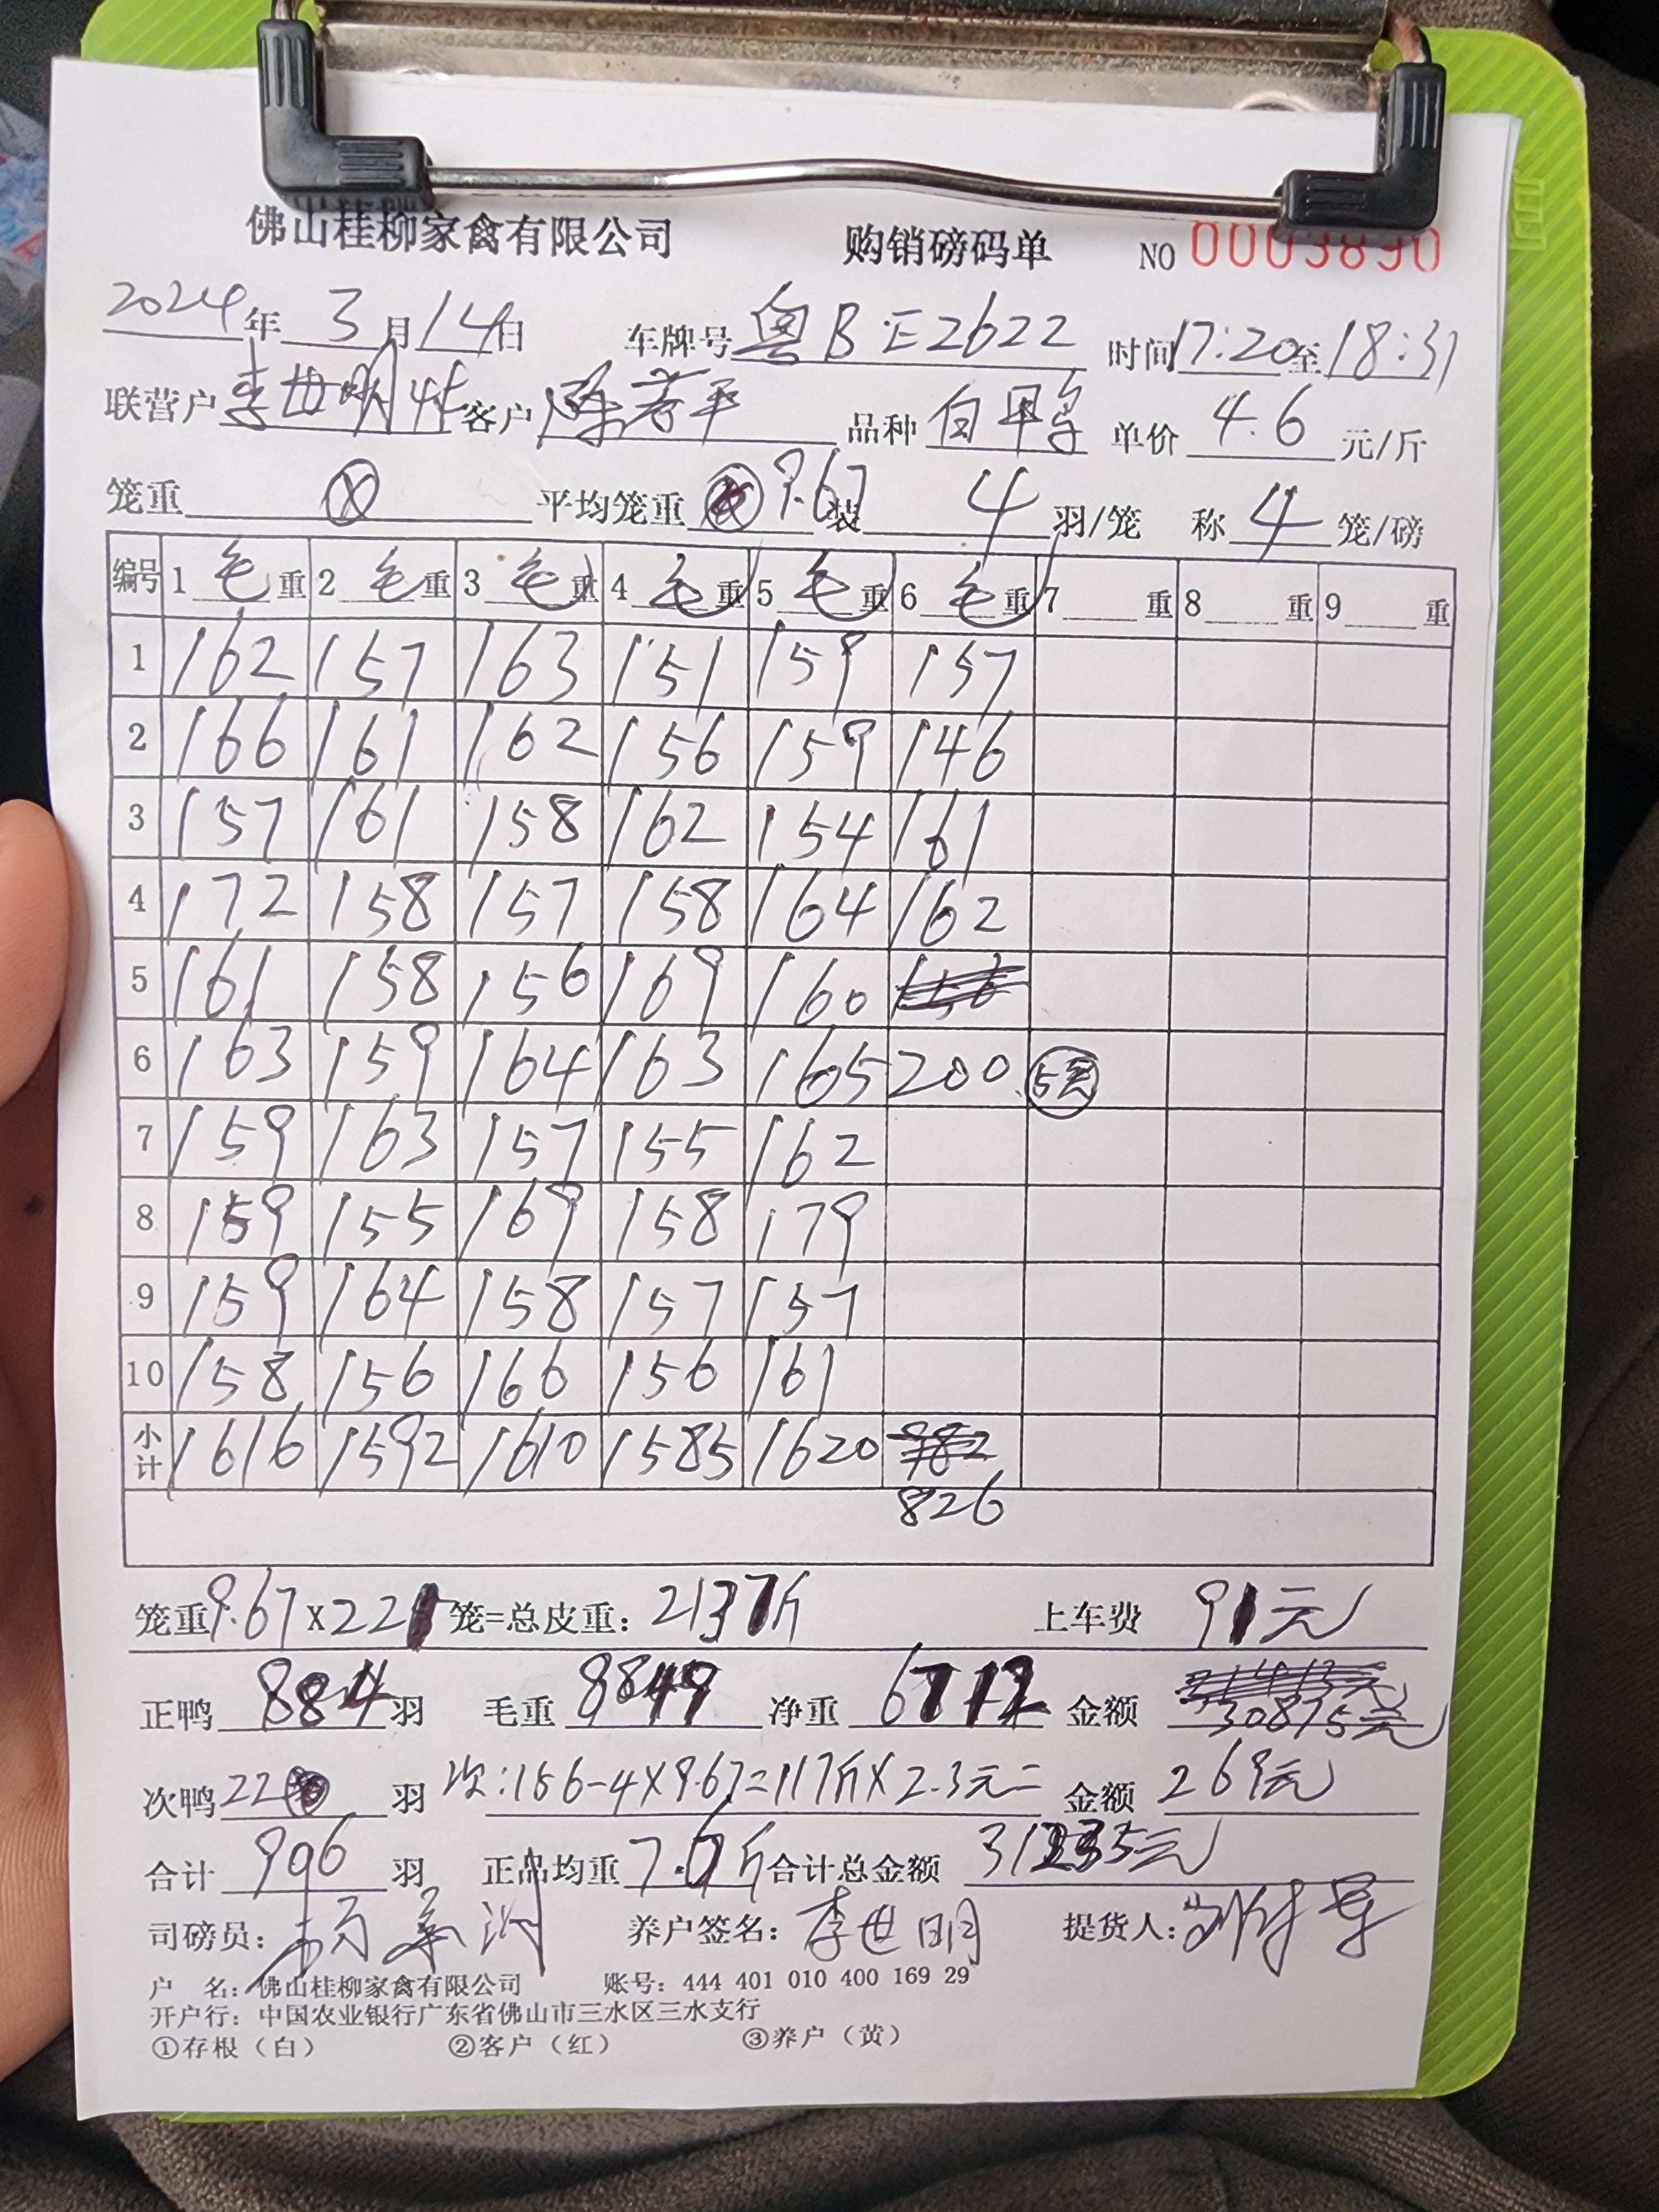 佛山桂柳家禽有限公司 购销磅码单 NO 0003890
2024年3月14日 车牌号 粤BE2622 时间17:20至18:31
联营户 李世明 客户 陈若平 品种 白甲 单价 4.6 元/斤
笼重 平均笼重 9.67 装 4 羽/笼 称 4 笼/磅
编号 1 毛重 2 毛重 3 毛重 4 毛重 5 毛重 6 毛重 7 重 8 重 9 重
1 162 157 163 151 159 157
2 166 161 162 156 159 146
3 157 161 158 162 154 161
4 172 158 157 158 164 162
5 161 158 156 169 160 156
6 163 159 164 163 165 200 5笼
7 159 163 157 155 162
8 159 155 169 158 179
9 159 164 158 157 157
10 158 156 166 156 161
小计 1616 1592 1610 1585 1620 982
826
笼重9.67x221笼=总皮重: 2137斤 上车费 91元
正鸭 884 羽 毛重 8849 净重 6712 金额 30875元
次鸭 22 羽 次:156-4X9.67=117斤X2.3元= 金额 269元
合计 906 羽 正品均重 7.6斤 合计总金额 31235元
司磅员: 养户签名: 李世明 提货人:
户 名: 佛山桂柳家禽有限公司 账号: 444 401 010 400 169 29
开户行: 中国农业银行广东省佛山市三水区三水支行
①存根（白） ②客户（红） ③养户（黄）